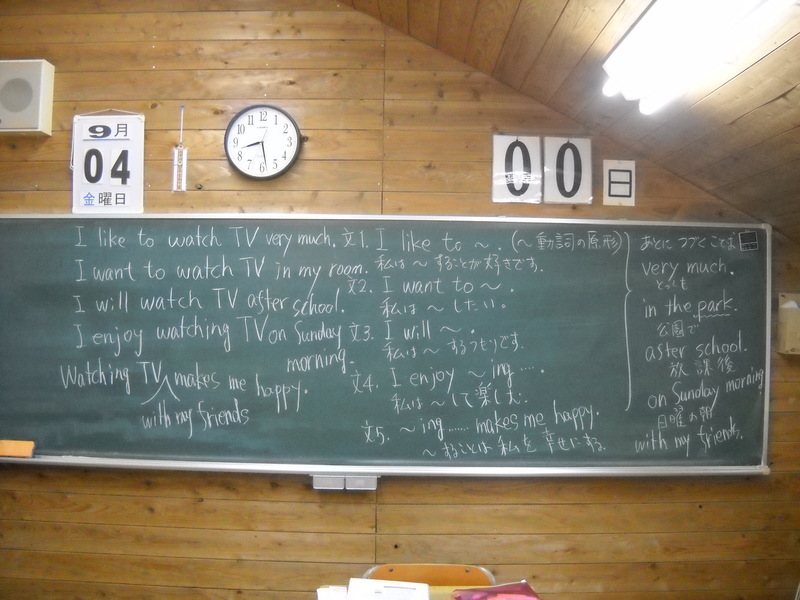 9月
04
金曜日
12
11
1
10
2
9
3
8
4
7
5
6
00
日
I like to watch TV very much.
I want to watch TV in my room.
I will watch TV after school.
I enjoy watching TV on Sunday
morning.
Watching TV makes me happy.
with my friends
文1. I like to ～. (～動詞の原形)
私は～することが好きです。
文2. I want to ～.
私は～したい。
文3. I will ～.
私は～するつもりです。
文4. I enjoy ～ing ....
私は～して楽しむ.
文5. ～ing ...... makes me happy.
～ることは私を幸せにする.
あとにつづくことば
very much.
とっても
in the park.
公園で
after school.
放課後
on Sunday morning
日曜の朝
with my friends.